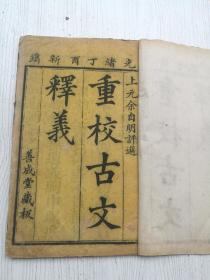 光緒丁酉新鐫
上元余自明評選
重校古文
釋義
善成堂藏板